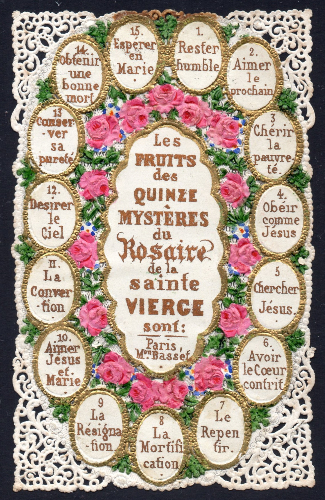 Les
FRUITS
des
QUINZE
MYSTÈRES
du
Rosaire
de la
sainte
VIERGE
sont:
Paris
Mon Basset
1.
Rester
humble.
2.
Aimer
le
prochain
3.
Chérir
la
pauvre-
té.
4.
Obéir
comme
Jésus
5
Chercher
Jésus.
6.
Avoir
le Cœur
contrit
7
Le
Repen
tir.
8
La
Mortifi
cation
9
La
Résigna
-tion
10.
Aimer
Jésus
et
Marie.
11.
La
Conver
tion
12.
Desirer
le
Ciel
13
Conser-
ver
sa
pureté
14.
Obtenir
une
bonne
mort
15.
Espérer
en
Marie